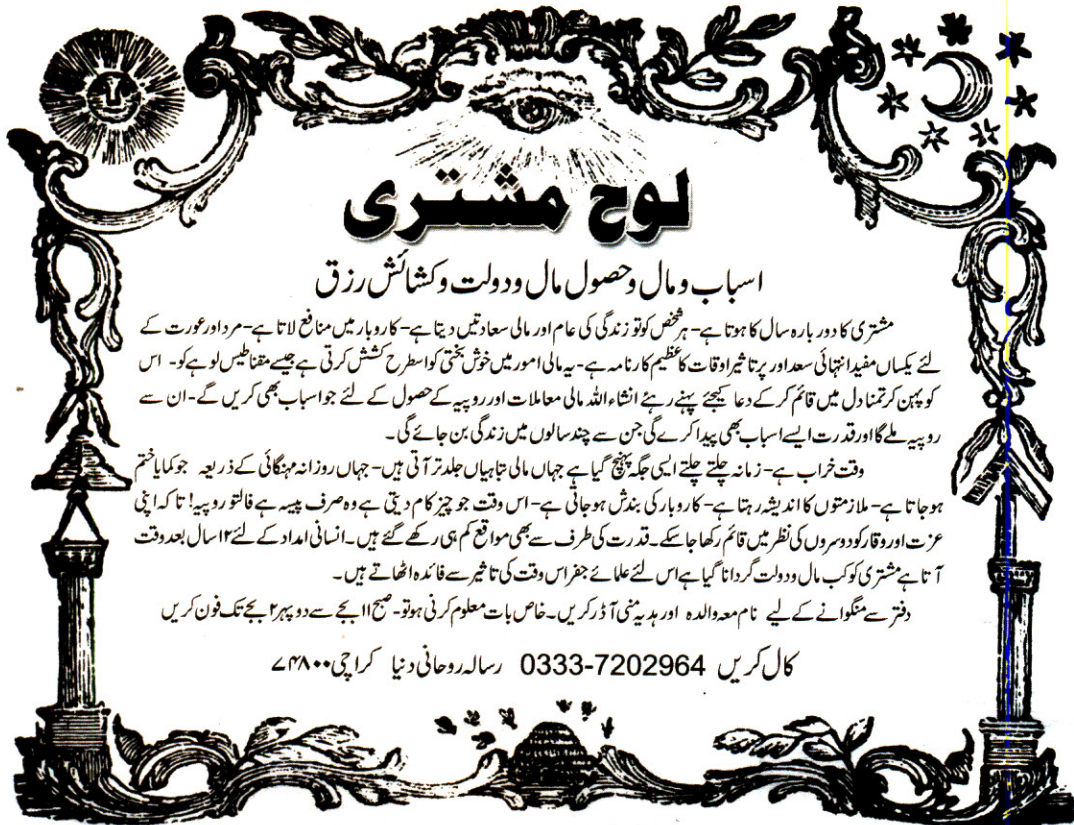 لوح مشتری
اسباب و مال و حصول مال و دولت و کشائش رزق
مشتری کا دور بارہ سال کا ہوتا ہے- ہر شخص کو تو زندگی کی عام اور مالی سعادتیں دیتا ہے- کاروبار میں منافع لاتا ہے- مرد اور عورت کے
لئے یکساں مفید انتہائی سعد اور پرتاثیر اوقات کا عظیم کارنامہ ہے- یہ مالی امور میں خوش بختی کو اسطرح کشش کرتی ہے جیسے مقناطیس لوہے کو- اس
کو پہن کر تمنا دل میں قائم کر کے دعا کیجئے پہنے رہئے انشاء اللہ مالی معاملات اور روپیہ کے حصول کے لئے جو اسباب بھی کریں گے- ان سے
روپیہ ملے گا اور قدرت ایسے اسباب بھی پیدا کرے گی جن سے چند سالوں میں زندگی بن جائے گی۔
وقت خراب ہے- زمانہ چلتے چلتے ایسی جگہ پہنچ گیا ہے جہاں مالی تباہیاں جلد تر آتی ہیں- جہاں روزانہ مہنگائی کے ذریعہ جو کمایا ختم
ہو جاتا ہے- ملازمتوں کا اندیشہ رہتا ہے- کاروبار کی بندش ہو جاتی ہے- اس وقت جو چیز کام دیتی ہے وہ صرف پیسہ ہے فالتو روپیہ! تاکہ اپنی
عزت اور وقار کو دوسروں کی نظر میں قائم رکھا جا سکے۔ قدرت کی طرف سے بھی مواقع کم ہی رکھے گئے ہیں۔ انسانی امداد کے لئے ۱۲ سال بعد وقت
آتا ہے مشتری کو کب مال و دولت گردانا گیا ہے اس لئے علمائے جفر اس وقت کی تاثیر سے فائدہ اٹھاتے ہیں۔
دفتر سے منگوانے کے لیے نام معہ والدہ اور ہدیہ منی آڈر کریں۔ خاص بات معلوم کرنی ہو تو- صبح ۱۱ بجے سے دوپہر ۲ بجے تک فون کریں
کال کریں 0333-7202964 رسالہ روحانی دنیا کراچی ۷۴۸۰۰